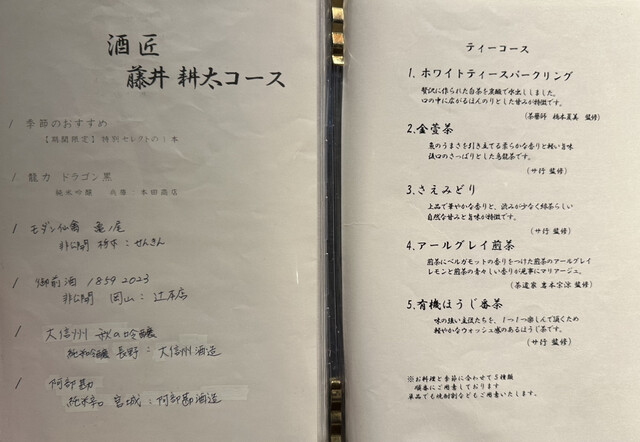 酒匠
藤井 耕太コース
/ 季節のおすすめ
【期間限定】特別セレクトの1本
/ 龍力 ドラゴン黒
純米吟醸 兵庫：本田商店
/ モダン仙禽 亀ノ尾
非公開 栃木：せんきん
/ 御前酒 1859 2023
非公開 岡山：辻本店
/ 大信州 秋の吟醸
純米吟醸 長野：大信州酒造
/ 阿部勘
純米辛口 宮城：阿部勘酒造
ティーコース
1. ホワイトティースパークリング
贅沢に作られた白茶を炭酸で水出ししました。
口の中に広がるほんのりとした甘みが特徴です。
（茶藝師 橋本夏美 監修）
2.金萱茶
魚のうまさを引き立てる柔らかな香りと軽い旨味
後口のさっぱりとした烏龍茶です。
（サ行 監修）
3.さえみどり
上品で華やかな香りと、渋みが少なく緑茶らしい
自然な甘みと旨味が特徴です。
（サ行 監修）
4.アールグレイ煎茶
煎茶にベルガモットの香りをつけた煎茶のアールグレイ
レモンと煎茶の青々しい香りが見事にマリアージュ。
（茶道家 岩本宗涼 監修）
5.有機ほうじ番茶
味の強い主役たちを、1つ1つ楽しんで頂くため
軽やかなウォッシュ感のあるほうじ茶です。
（サ行 監修）
※お料理と季節に合わせて5種類
順番にご用意しております
単品でも焼酎割などもご用意いたします。